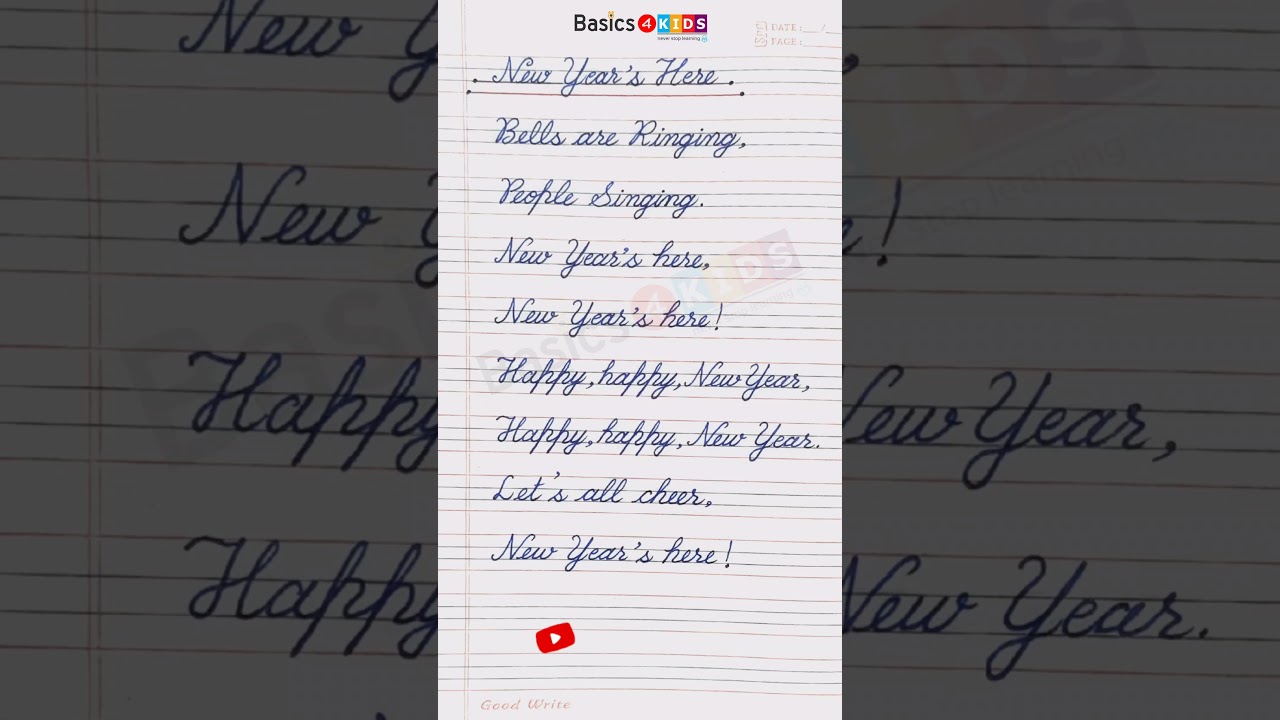 Basics 4 KIDS
never stop learning
DATE:__/_
PAGE:
New Year's Here.
Bells are Ringing,
People Singing.
New Year's here,
New Year's here!
Happy, happy, New Year,
Happy, happy, New Year.
Let's all cheer,
New Year's here!
Good Write